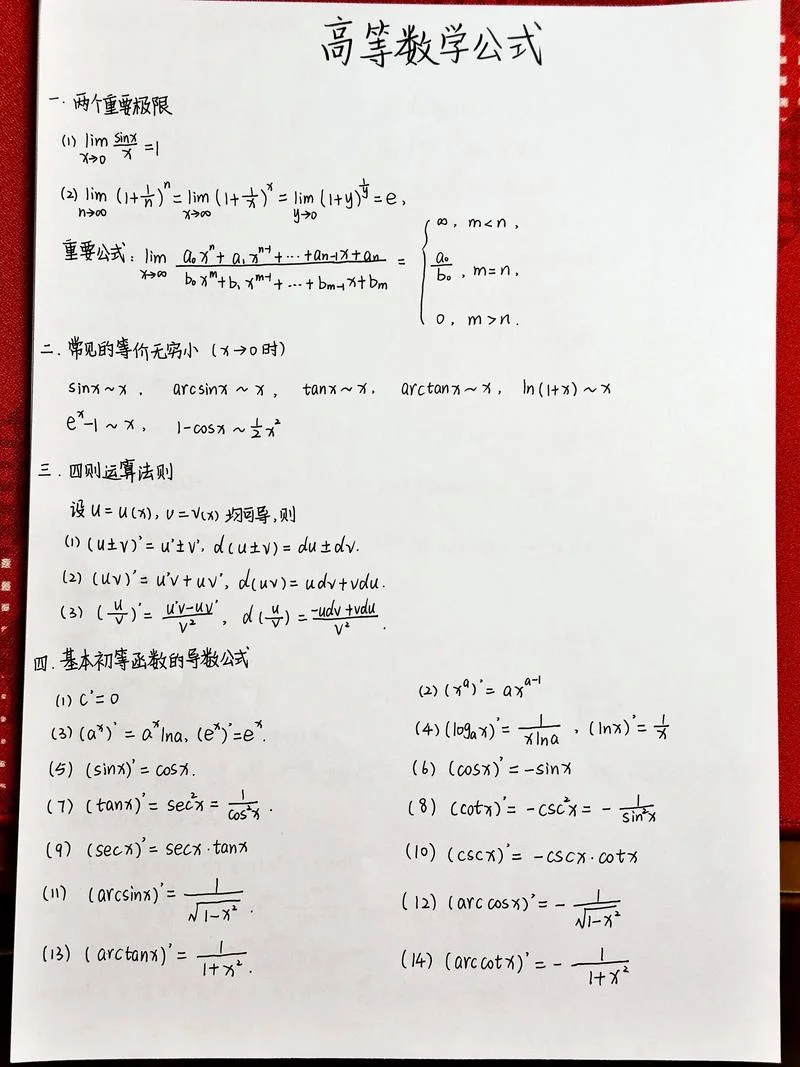 高等数学公式
一. 两个重要极限
(1) lim_{x→0} sinx/x = 1
(2) lim_{n→∞} (1+1/n)^n = lim_{x→∞} (1+1/x)^x = lim_{y→0} (1+y)^{1/y} = e,
重要公式: lim_{x→∞} (a₀x^n + a₁x^{n-1} + ··· + a_{n-1}x + a_n)/(b₀x^m + b₁x^{m-1} + ··· + b_{m-1}x + b_m) = { ∞, m<n,
a₀/b₀, m=n,
0, m>n.
二. 常见的等价无穷小 (x→0时)
sinx~x, arcsinx~x, tanx~x, arctanx~x, ln(1+x)~x
e^x-1~x, 1-cosx~1/2 x²
三. 四则运算法则
设 u=u(x), v=v(x) 均可导,则
(1) (u±v)'=u'±v', d(u±v)=du±dv.
(2) (uv)'=u'v+uv', d(uv)=udv+vdu.
(3) (u/v)'=(u'v-uv')/v², d(u/v)=(-udv+vdu)/v².
四. 基本初等函数的导数公式
(1) C'=0 (2) (x^a)'=ax^{a-1}
(3) (a^x)'=a^x lna, (e^x)'=e^x. (4) (log_a x)'=1/(xlna), (lnx)'=1/x
(5) (sinx)'=cosx. (6) (cosx)'=-sinx
(7) (tanx)'=sec²x=1/cos²x. (8) (cotx)'=-csc²x=-1/sin²x
(9) (secx)'=secx·tanx (10) (cscx)'=-cscx·cotx
(11) (arcsinx)'=1/√(1-x²). (12) (arccosx)'=-1/√(1-x²)
(13) (arctanx)'=1/(1+x²). (14) (arccotx)'=-1/(1+x²)